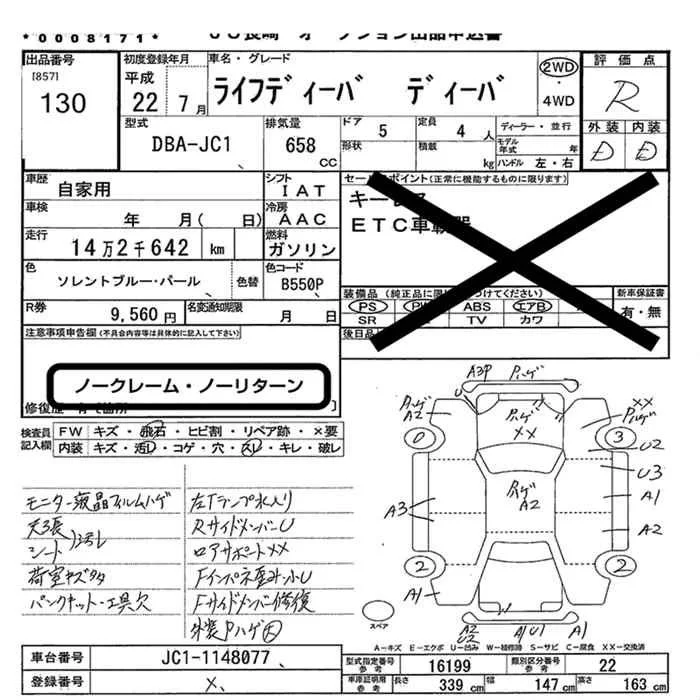 *0008171*
出品番号
[857]
130
初度登録年月
平成
22 7月
車名・グレード
ライフディーバ ディーバ
2WD
・
4WD
評価点
R
外装 内装
D D
型式
DBA-JC1
排気量
658
cc
ドア
5
定員
4 人
形状
積載
kg
ディーラー・並行
モデル年式 年
ハンドル 左・右
車歴
自家用
シフト
IAT
車検
年 月( 日)
冷房
AAC
走行
14万2千642 km
燃料
ガソリン
色
ソレントブルー・パール
色替
色コード
B550P
R券
9,560 円
名変通知期限
月 日
セールスポイント(正常に機能するものに限ります)
キーレス
ETC車載器
装備品
PS PW ABS エアB
SR TV カワ
新車保証書
有・無
後日品
注意事項申告欄(不具合内容等は具体的に記入して下さい)
ノークレーム・ノーリターン
修復歴
検査員
記入欄
FW キズ・飛石・ヒビ割・リペア跡・×要
内装 キズ・汚レ・コゲ・穴・スレ・キレ・破レ
モニター液晶フィルムハゲ
天張
シート 汚レ
荷室キズ多
パンクキット・工具欠
左Tランプ水入り
RサイドメンバーU
ロアサポートXX
Fインパネ歪み小U
Fサイドメンバー修復
外装Pハゲ大
A3P Pハゲ
U
Pハゲ
A2
Pハゲ
XX
XX
Pハゲ
0 3
U2
U3
A1
A2
A3
Pハゲ
A2
2 2
A1 A1
W
A2
U2
A1U1
スペア
A-キズ E-エクボ U-凹み W-補修跡 S-サビ C-腐食 XX-交換済
車台番号
JC1-1148077
登録番号
×
型式指定番号
参考
16199
類別区分番号
参考
22
車庫証明用
参考
長さ 339 cm 幅 147 cm 高さ 163 cm